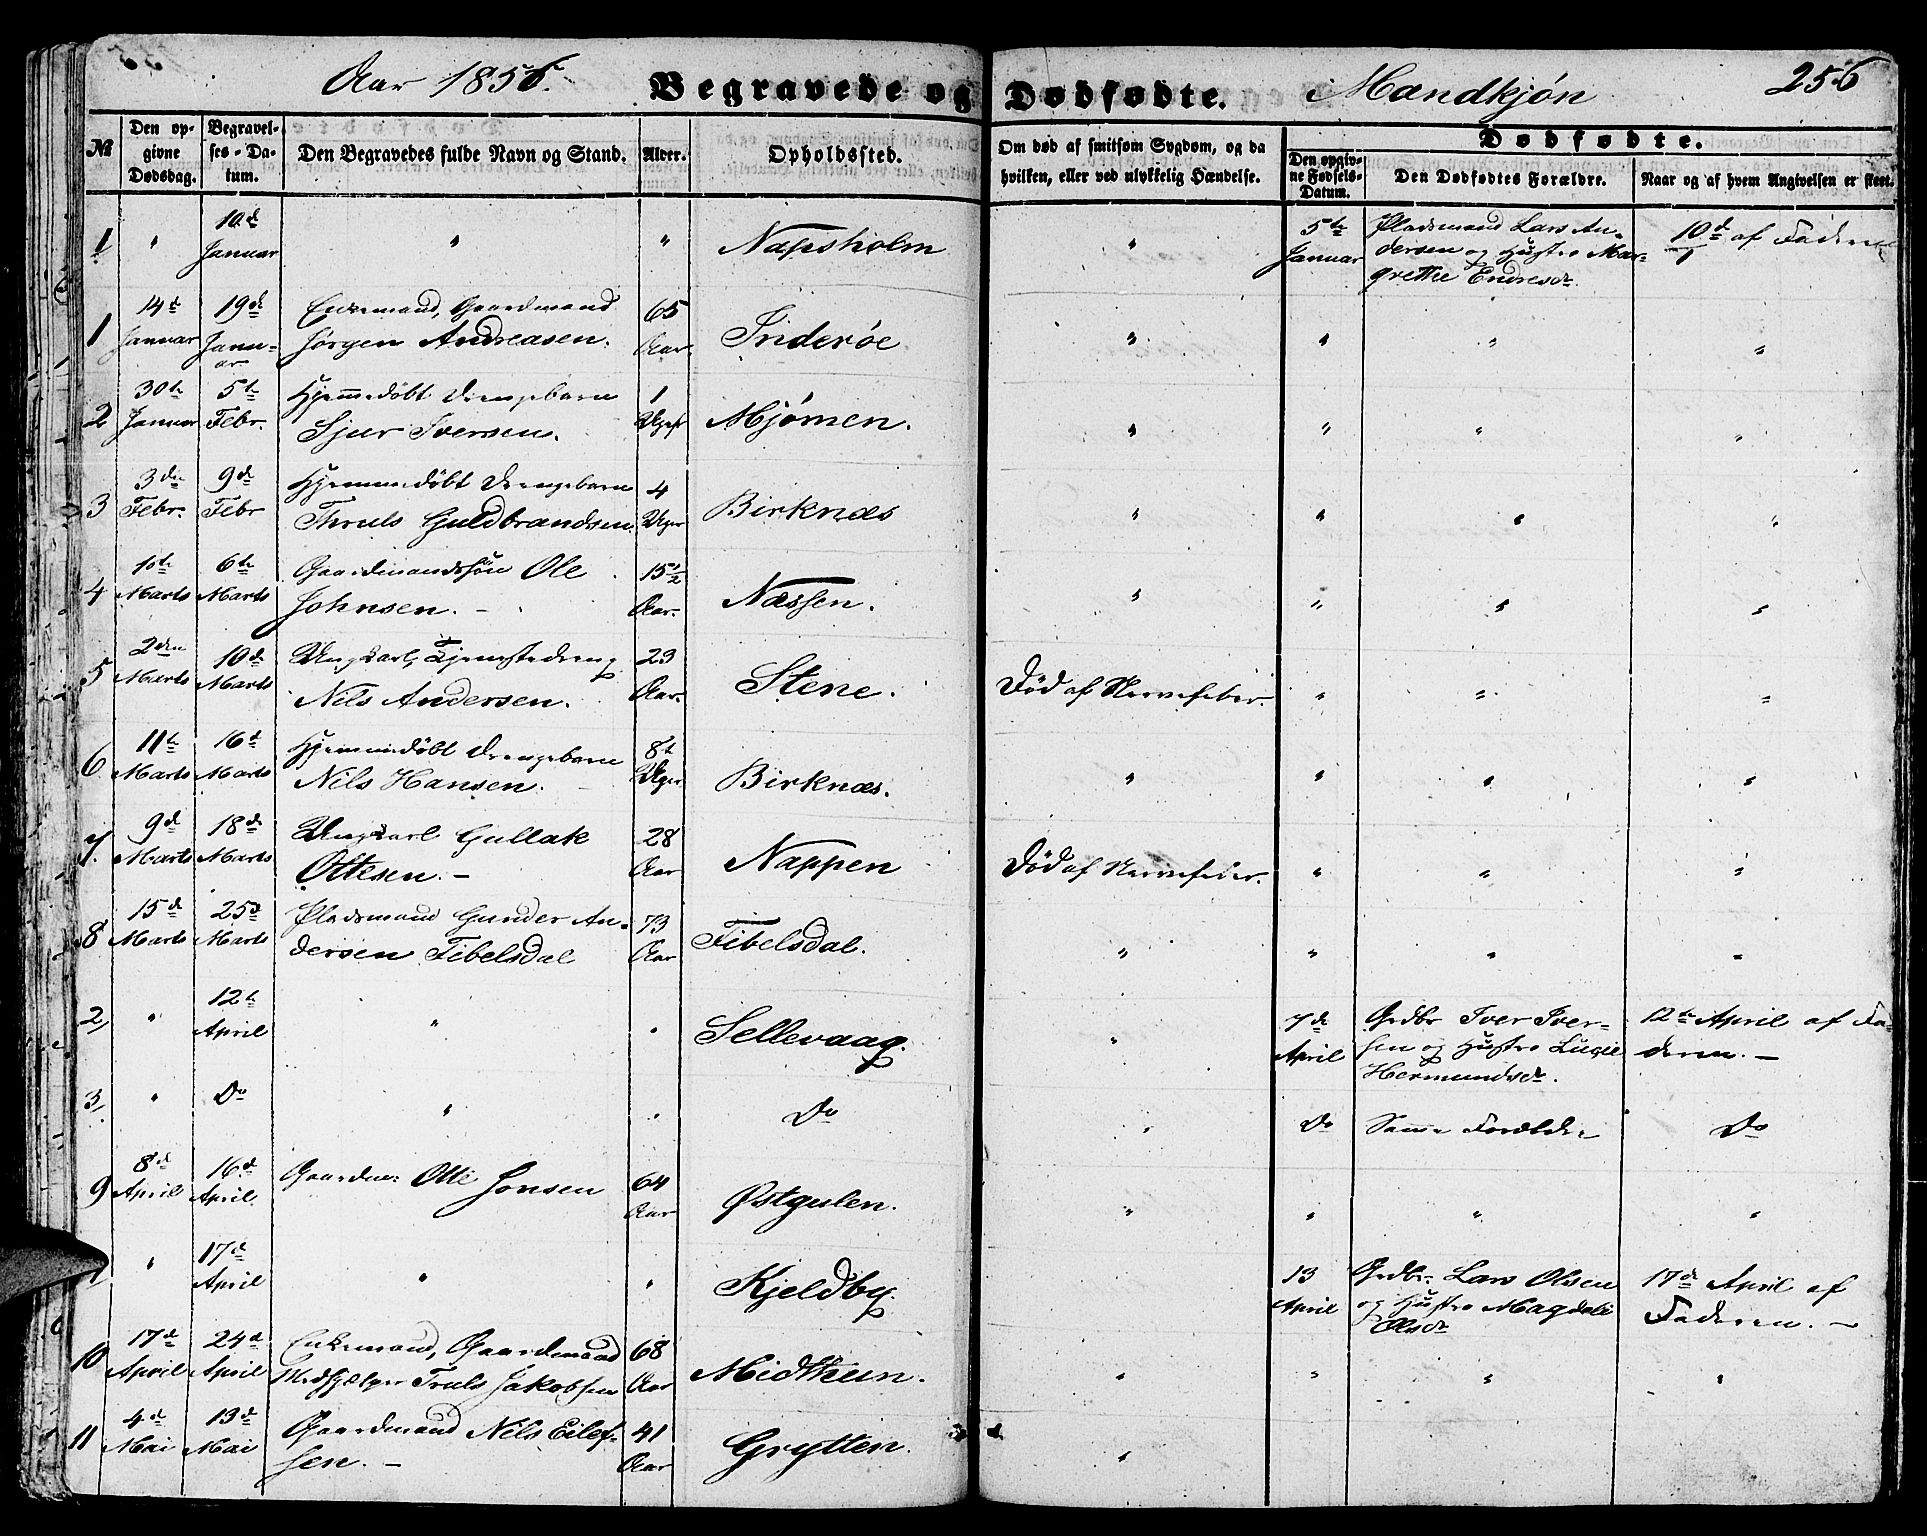 Aar 1856. Begravede og Dødfødte. Mandkjøn 256
№ Den opgivne Dødsdag. Begravelses-Datum. Den Begravedes fulde Navn og Stand. Alder. Opholdssted. Om død af smitsom Sygdom, og da hvilken, eller ved ulykkelig Hændelse. Dødfødte.
Den opgivne Fødsels-Datum. Den Dødfødtes Forældre. Naar og af hvem Angivelsen er skeet.
1 " 10d Januar " " Napsholm " 5te Januar Pladsmand Lars Andersen og Hustro Margrethe Endresdr 10d/1 af Faderen
1 14d Januar 19d Januar Enkemand, Gaardmand Jørgen Andreasen. 65 Aar. Inderøe " " " "
2 30te Januar 5te Febr. Hjemmedøbt Drengebarn Sjur Iversen. 1 Uge Mjømen. " " " "
3 3den Febr. 9de Febr Hjemmedøbt Drengebarn Thruls Guldbrandsen. 4 Uger Birknæs " " " "
4 1ste Marts 6te Marts Gaardmandssøn Ole Johnsen. – 15 1/2 Aar. Næssen. " " " "
5 2den Marts 10d Marts Ungkarl, Tjenestedreng Nils Andersen. 23 Aar. Stene. Død af Nervefeber. " " "
6 11te Marts 16d Marts Hjemmedøbt Drengebarn Nils Hansen. 8t Uger Birknæs. " " " "
7. 9d Marts 18de Marts Ungkarl Gullak Ottesen. – 28 Aar Nappen Død af Nervefeber. " " "
8 15de Marts 25d Marts Pladsmand Gunder Andersen Tibelsdal 73 Aar Tibelsdal. " " " "
2, " 12te April " " Sellevaag. " 7de April Grdbr Iver Iversen og Hustro Lucie Hermundsdr. 12te April af Faderen. –
3, " Do " " Do " Do Samme Forældre Do
9 8d April 16d April. Gaardm: Otte Jonsen 64 Aar Østgulen. " " " "
" 17de April " " Kjeldby. 13 April Grdbr. Lars Olsen og Hustro Magdeli Olsdr 17de April af Faderen. –
10 17de April 24d April Enkemand, Gaardmand Medhjælper Truls Jakobsen 68 Aar Midthun. " " " "
11 4d Mai 13d Mai Gaardmand Nils Eilefsen. – 41 Aar Grytten. "